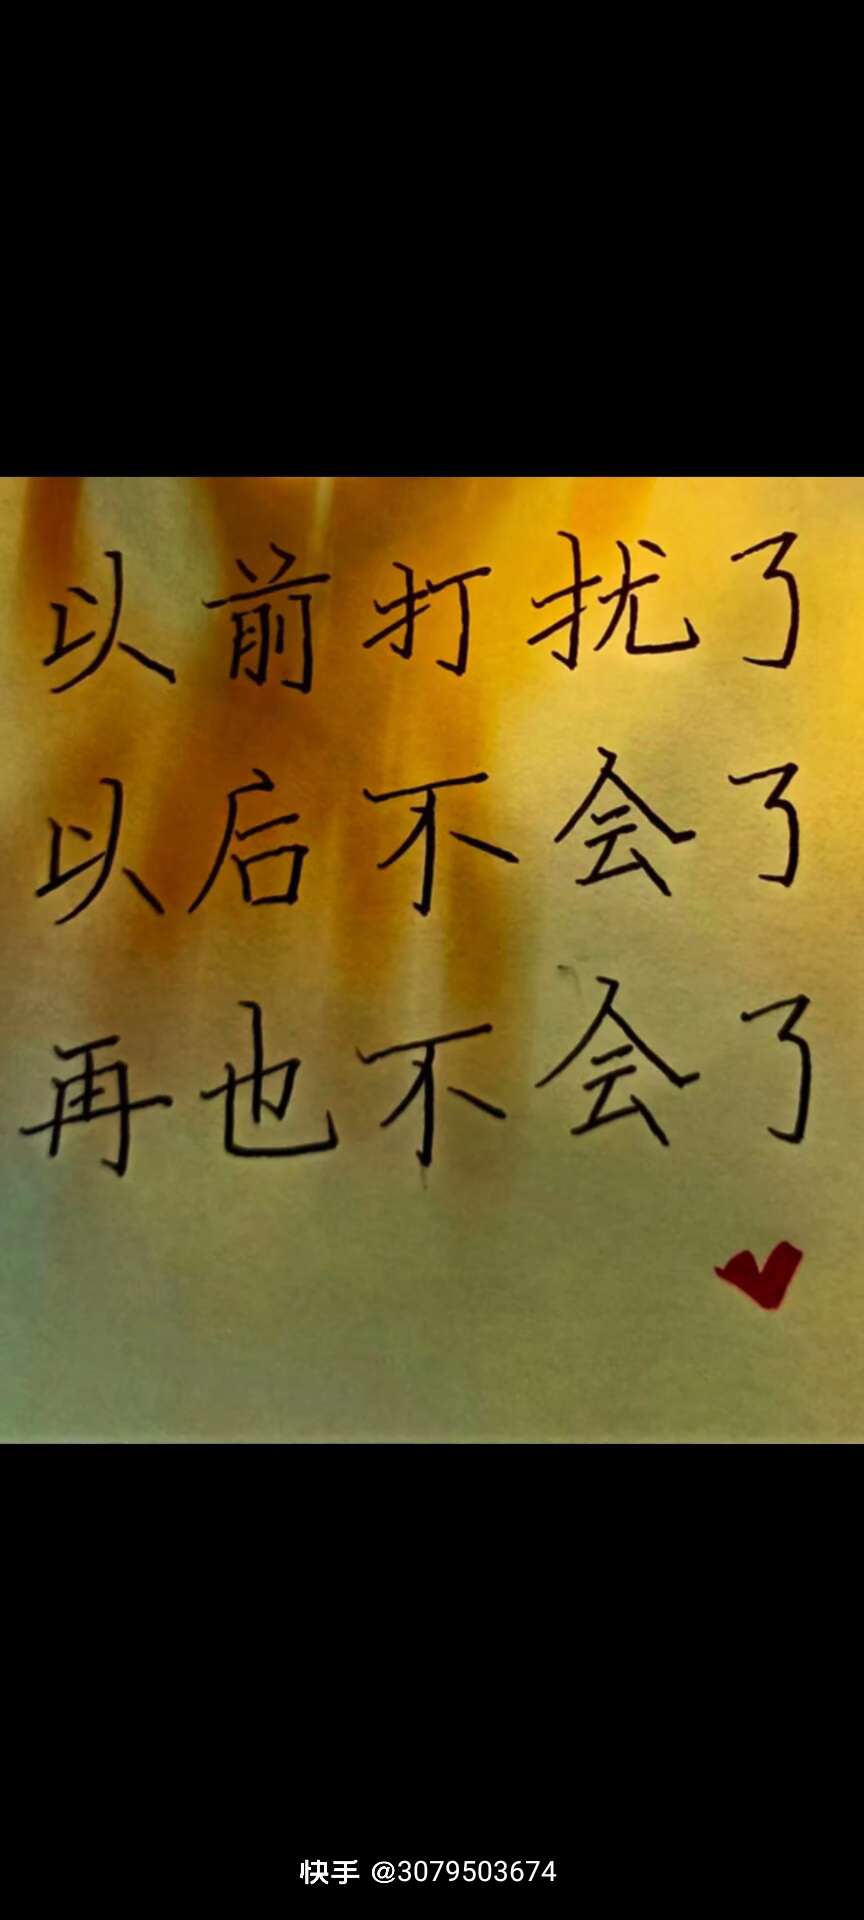 以前打扰了
以后不会了
再也不会了
快手 @3079503674